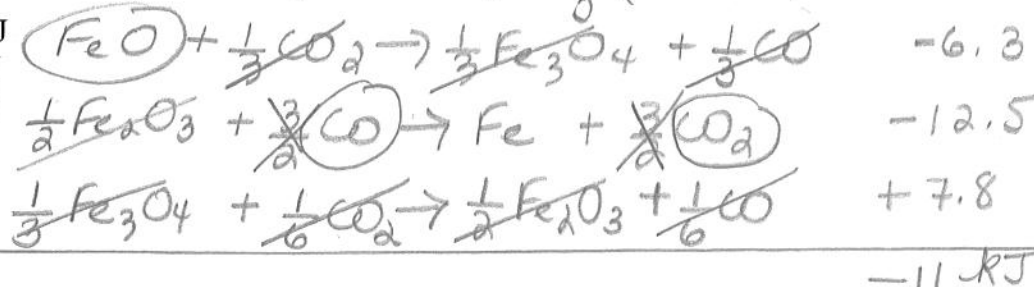 J FeO + 1/3 CO₂ → 1/3 Fe₃O₄ + 1/3 CO -6.3
1/2 Fe₂O₃ + 3/2 CO → Fe + 3/2 CO₂ -12.5
1/3 Fe₃O₄ + 1/6 CO₂ → 1/2 Fe₂O₃ + 1/6 CO + 7.8
-11 kJ